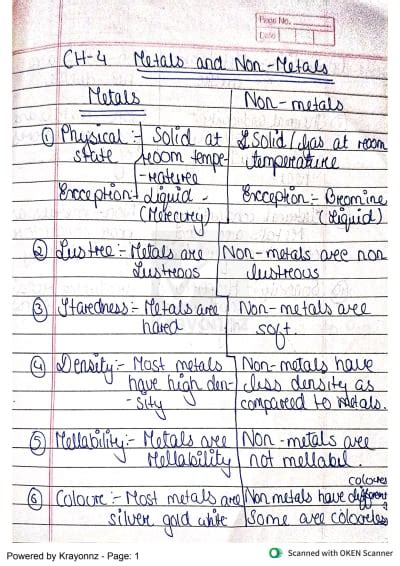 Page No.
Date
CH-4 Metals and Non-Metals
Metals
Non-metals
① Physical :- Solid at
state room tempe-
-rature
Exception:- Liquid -
(Mercury)
Solid / Gas at room
temperature
Exception:- Bromine
(Liquid)
② Lustre :- Metals are
Lustreous
Non-metals are non
lustreous
③ Hardness :- Metals are
hard
Non-metals are
soft.
④ Density:- Most metals
have high den-
-sity
Non-metals have
less density as
compared to metals.
⑤ Mellability:- Metals are
Mellability
Non-metals are
not mellabel.
⑥ Colour :- Most metals are
silver gold white
colours
Non metals have different
Some are colourless
Powered by Krayonnz - Page: 1
Scanned with OKEN Scanner